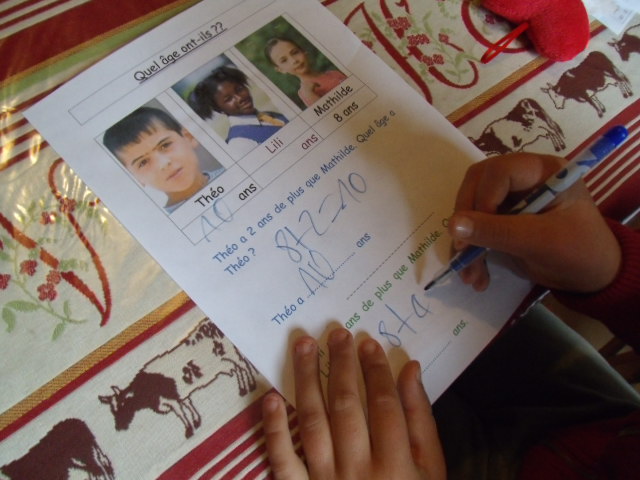 Quel âge ont-ils ??
Théo Lili Mathilde
10 ans ans 8 ans
Théo a 2 ans de plus que Mathilde. Quel âge a
Théo ?
8+2=10
Théo a 10 ans
ans de plus que Mathilde.
8+
ans.